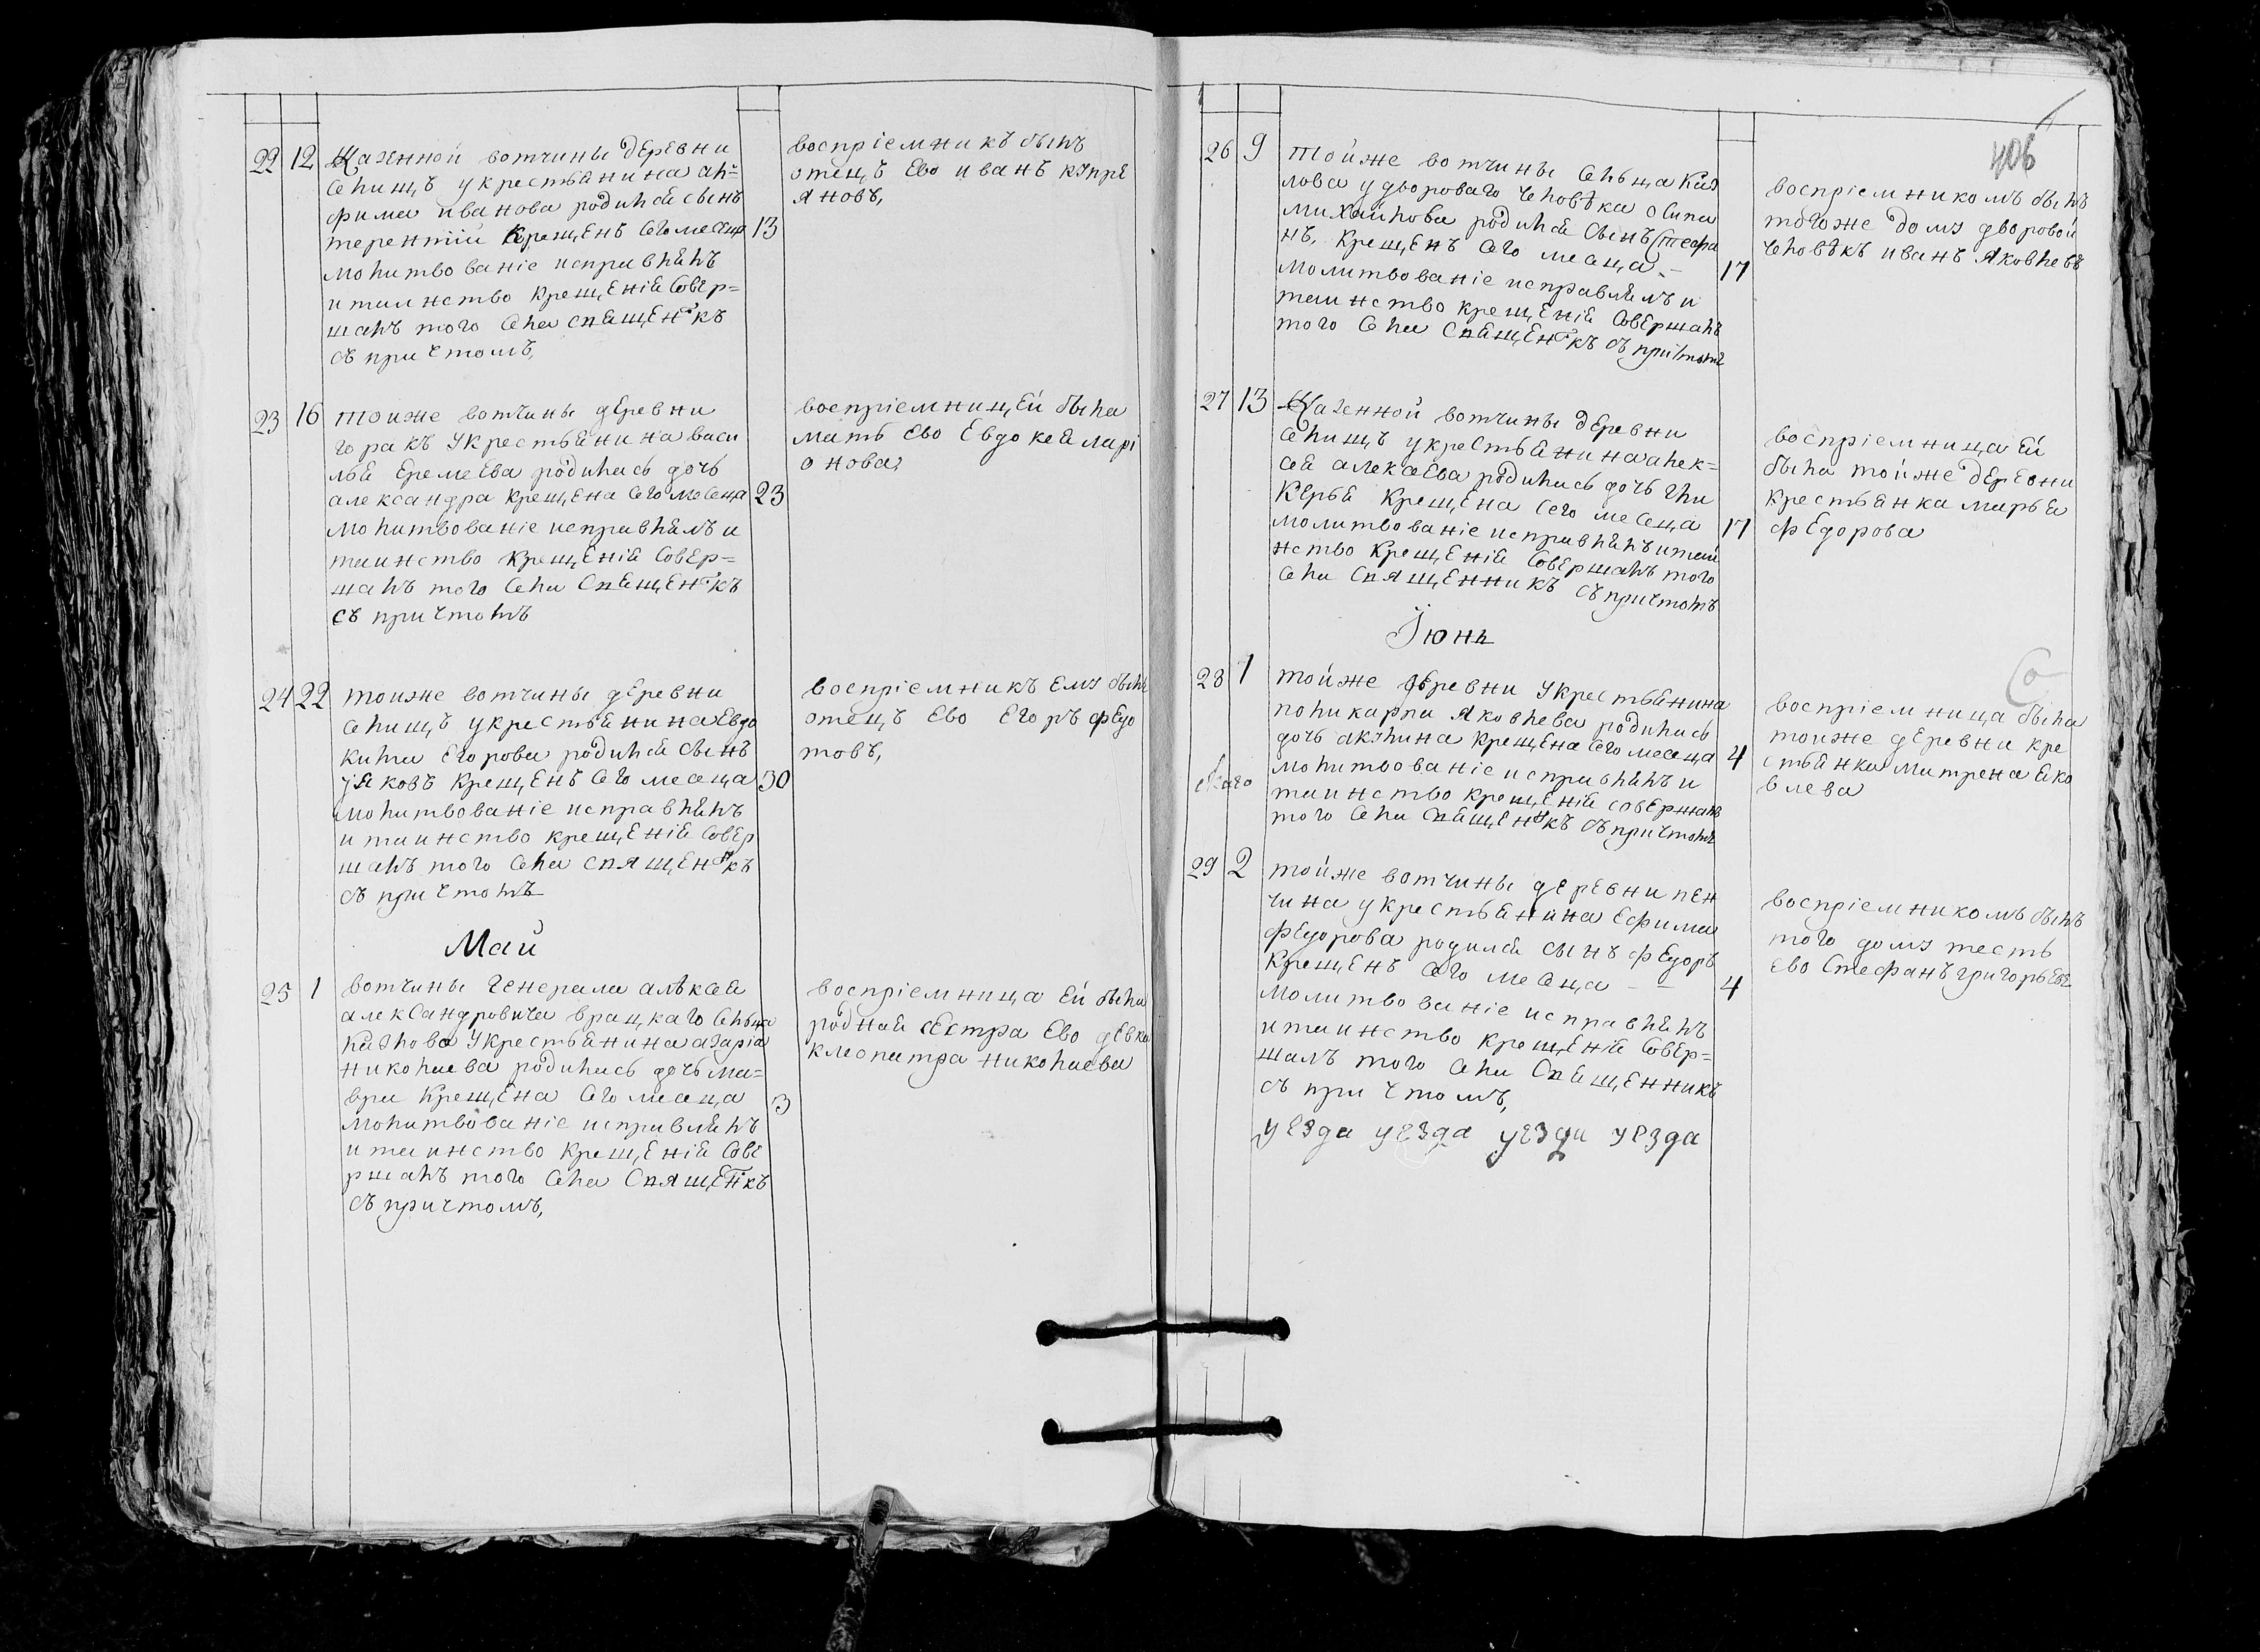 22 12 Казенной вотчины деревни
селищъ укрестьянина ан=
фима иванова родился сынъ
терентiй крещенъ сего месеца 13
молитвованiе исправлялъ
и таинство крещенiя совер=
шалъ того села спящен:къ
съ причтомъ,
воспрiемникъ былъ
отецъ Ево иванъ купре
яновъ,
23 16 тоиже вотчины деревни
горакъ укрестьянина васи
лья Еремеева родилась дочь
александра крещена сего месеца 23
молитвованiе исправлялъ и
таинство крещенiя совер=
шалъ того села спящен:къ
съ причтомъ
воспрiемницей была
мать Ево Евдокея ларi
онова,
24 22 тоиже вотчины деревни
селищъ укрестьянина Евдо
кима Егорова родился сынъ
яковъ крещенъ сего месеца 30
молитвованiе исправлялъ
и таинство крещенiя совер
шалъ того села спящен:къ
съ причтомъ
воспрiемникъ Ему былъ
отецъ Ево Егоръ федо
товъ,
Май
25 1 вотчины генерала алѣксея
александровича врацкаго сельца
укрестьянина азарiа
николаева родилась дочь ма=
вра крещена сего месеца 3
молитвованiе исправлялъ
и таинство крещенiя сове
ршалъ того села спящен:къ
съ причтомъ,
воспрiемница Ей была
родная сестра Ево девка
клеопатра николаева
406
26 9 тойже вотчины сельца Каз
лова удвороваго человѣка осипа
михайлова родился сынъ стефа
нъ, крещенъ сего месеца – 17
молитвованiе исправлялъ и
таинство крещенiя совершалъ
того села спящен:къ съ причтомъ
воспрiемникомъ былъ
тогоже дому дворовой
человѣкъ иванъ яковлевъ
27 13 Казенной вотчины деревни
селищъ укрестьянина алек=
сея алексеева родилась дочь гли
керья крещена сего месеца 17
молитвованiе исправлялъ итаи
нство крещенiя совершалъ того
села спящЕнникъ съ причтомъ
воспрiемница Ей
была тойже деревни
крестьянка марья
федорова
Iюнь
28 1 тойже деревни укрестьянина
поликарпа яковлева родилась
дочь акулина крещена сего месеца 4
молитвованiе исправлялъ и
таинство крещенiя совершалъ
того села спящен:къ съ причтомъ
воспрiемница была
тоиже деревни кре
стьянка матрена яко
влева
29 2 тойже вотчины деревни пен
чина укрестьянина Ефима
федорова родился сынъ федоръ
крещенъ сего месеца – – 4
молитвованiе исправлялъ
и таинство крещенiя совер=
шалъ того села спященникъ
съ причтомъ,
воспрiемникомъ былъ
того дому тесть
Ево стефанъ григорьевъ
уезда уезда уезда уезда